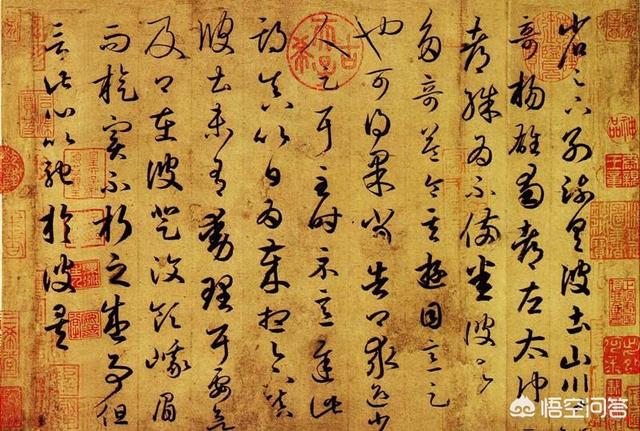 省足下別疏具彼土山川
奇揚雄蜀都左太沖
都殊為不備悉彼故
多奇益令其遊目意足
也可得果當告卿求迎少
人足耳至時示意遲此
期真以日為歲想足下鎮
彼土未有動理耳要欲
及卿在彼登汶領峨眉
而旋實不朽之盛事但
言此心以馳於彼矣
悟空问答